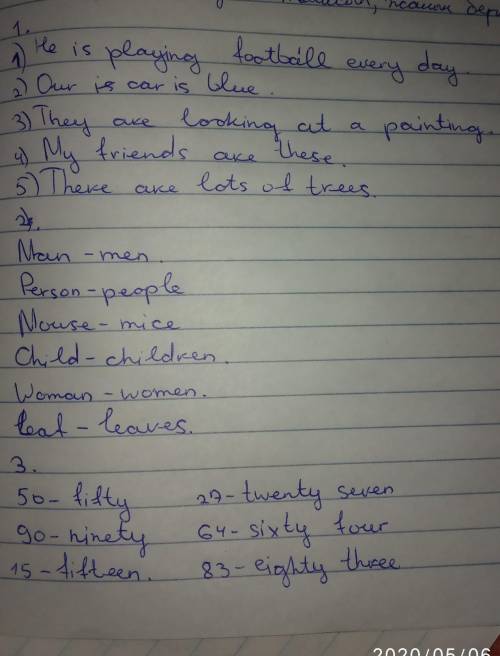 1.
1) He is playing football every day.
2) Our is car is blue.
3) They are looking at a painting.
4) My friends are these.
5) There are lots of trees.
2.
Man - men.
Person - people
Mouse - mice
Child - children.
Woman - women.
Leaf - leaves.
3.
50 - fifty 27 - twenty seven
90 - ninety 64 - sixty four
15 - fifteen. 83 - eighty three
2020/05/06